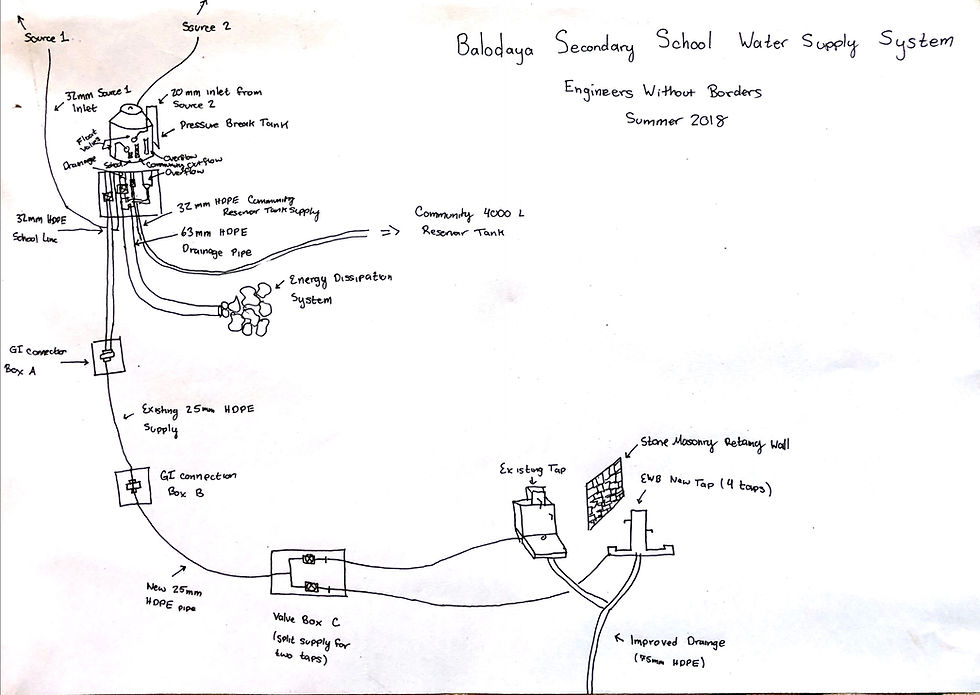 Balodaya Secondary School Water Supply System
Engineers Without Borders
Summer 2018
Source 1
Source 2
32mm Source 1
Inlet
20mm inlet from
Source 2
Pressure Break Tank
Float
Valves
Drainage
School
Overflow
Community Outflow
Overflow
32mm HDPE
School Line
32mm HDPE Community
Reservoir Tank Supply
63mm HDPE
Drainage Pipe
Community 4000 L
Reservoir Tank
Energy Dissipation
System
GI connection
Box A
Existing 25mm HDPE
Supply
GI connection
Box B
New 25mm
HDPE pipe
Valve Box C
(split supply for
two taps)
Existing Tap
Stone Masonry Retaing Wall
EWB New Tap (4 taps)
Improved Drainge
(75mm HDPE)